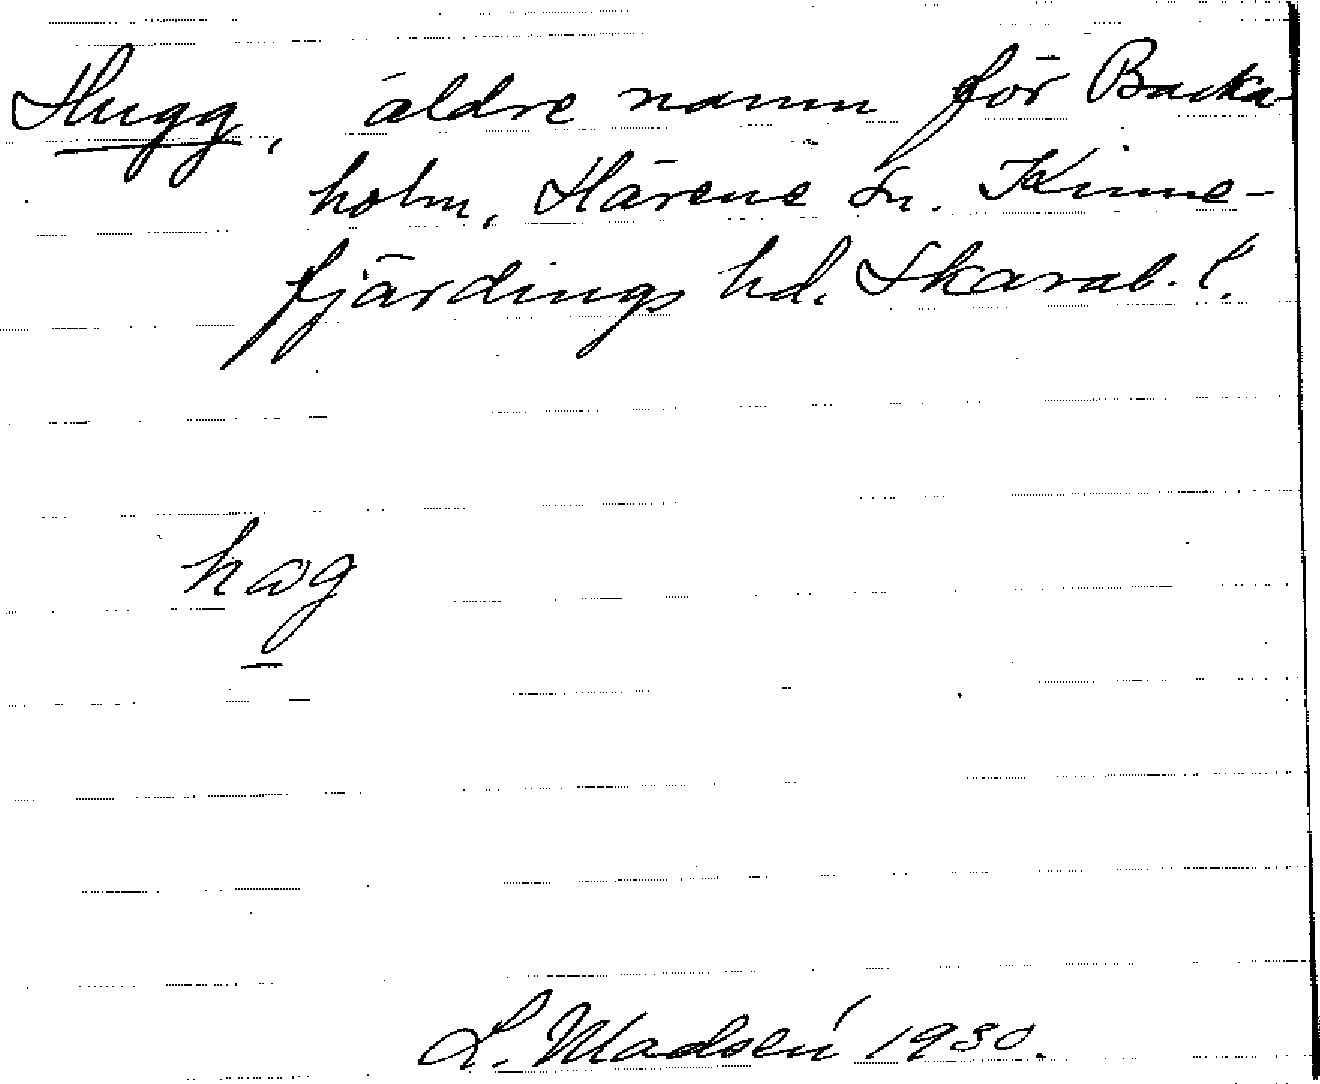 Hugg, äldre namn för Backa
holm, Härene sn. Kinne-
fjärdings hd. Skarab. l.
hag
L. Madsén 1930.